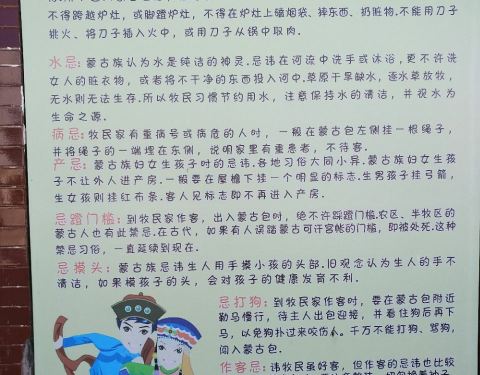 不得跨越炉灶，或脚蹬炉灶，不得在炉灶上磕烟袋、摔东西、扔脏物.不能用刀子
挑火、将刀子插入火中，或用刀子从锅中取肉.
水忌:蒙古族认为水是纯洁的神灵.忌讳在河流中洗手或沐浴,更不许洗
女人的脏衣物，或者将不干净的东西投入河中.草原干旱缺水，逐水草放牧，
无水则无法生存.所以牧民习惯节约用水，注意保持水的清洁，并视水为
生命之源.
病忌:牧民家有重病号或病危的人时，一般在蒙古包左侧挂一根绳子，
并将绳子的一端埋在东侧，说明家里有重患者，不待客.
产忌:蒙古族妇女生孩子时的忌讳.各地习俗大同小异.蒙古族妇女生孩
子不让外人进产房.一般要在屋檐下挂一个明显的标志.生男孩子挂弓箭，
生女孩则挂红布条.客人见标志即不再进入产房.
忌蹬门槛:到牧民家作客，出入蒙古包时，绝不许踩蹬门槛.农区、半牧区的
蒙古人也有此禁忌.在古代，如果有人误踏蒙古可汗宫帐的门槛，即被处死.这种
禁忌习俗，一直延续到现在.
忌摸头:蒙古族忌讳生人用手摸小孩的头部.旧观念认为生人的手不
清洁，如果摸孩子的头，会对孩子的健康发育不利.
忌打狗:到牧民家作客时，要在蒙古包附近
勒马慢行，待主人出包迎接，并看住狗后再下
马，以免狗扑过来咬伤人.千万不能打狗、骂狗，
闯入蒙古包.
作客忌:讳牧民虽好客，但作客的忌讳也比较